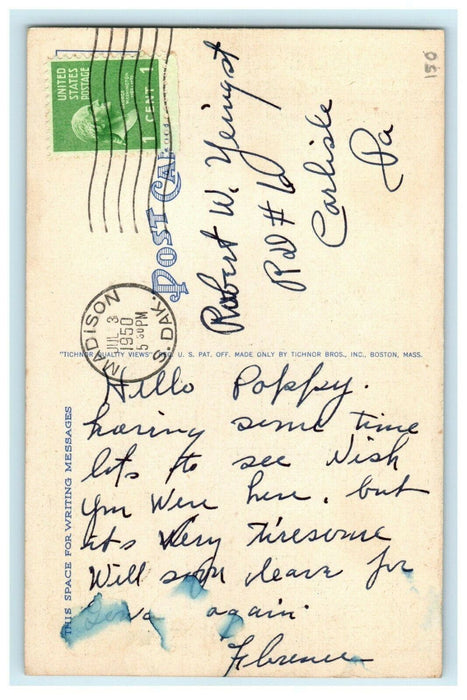 150
UNITED
STATES
POSTAGE
1 CENT 1
POST CA
Robert W. Yeingst
RD #6
Carlisle
Pa
MADISON
JUL 3
1950
5 30 PM
S. DAK.
"TICHNOR QUALITY VIEWS" REG. U. S. PAT. OFF. MADE ONLY BY TICHNOR BROS., INC., BOSTON, MASS.
THIS SPACE FOR WRITING MESSAGES
Hello Poppy.
having some time
lots to see Wish
you Were here. but
its Very Tiresome
Will soon leave for
again.
Florence